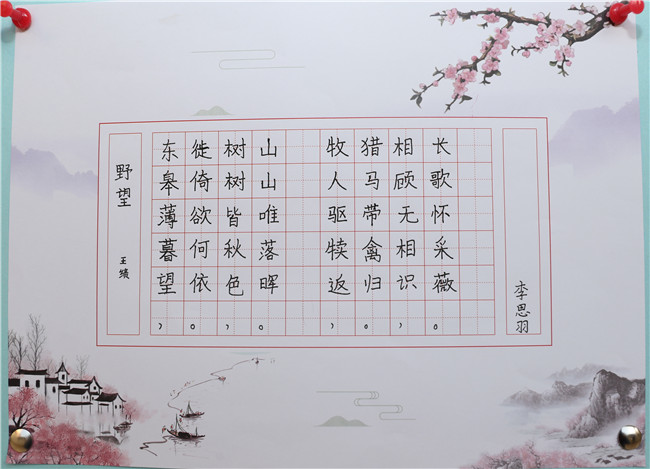 野望
王绩
东皋薄暮望，
徙倚欲何依。
树树皆秋色，
山山唯落晖。
牧人驱犊返，
猎马带禽归。
相顾无相识，
长歌怀采薇。
李思羽